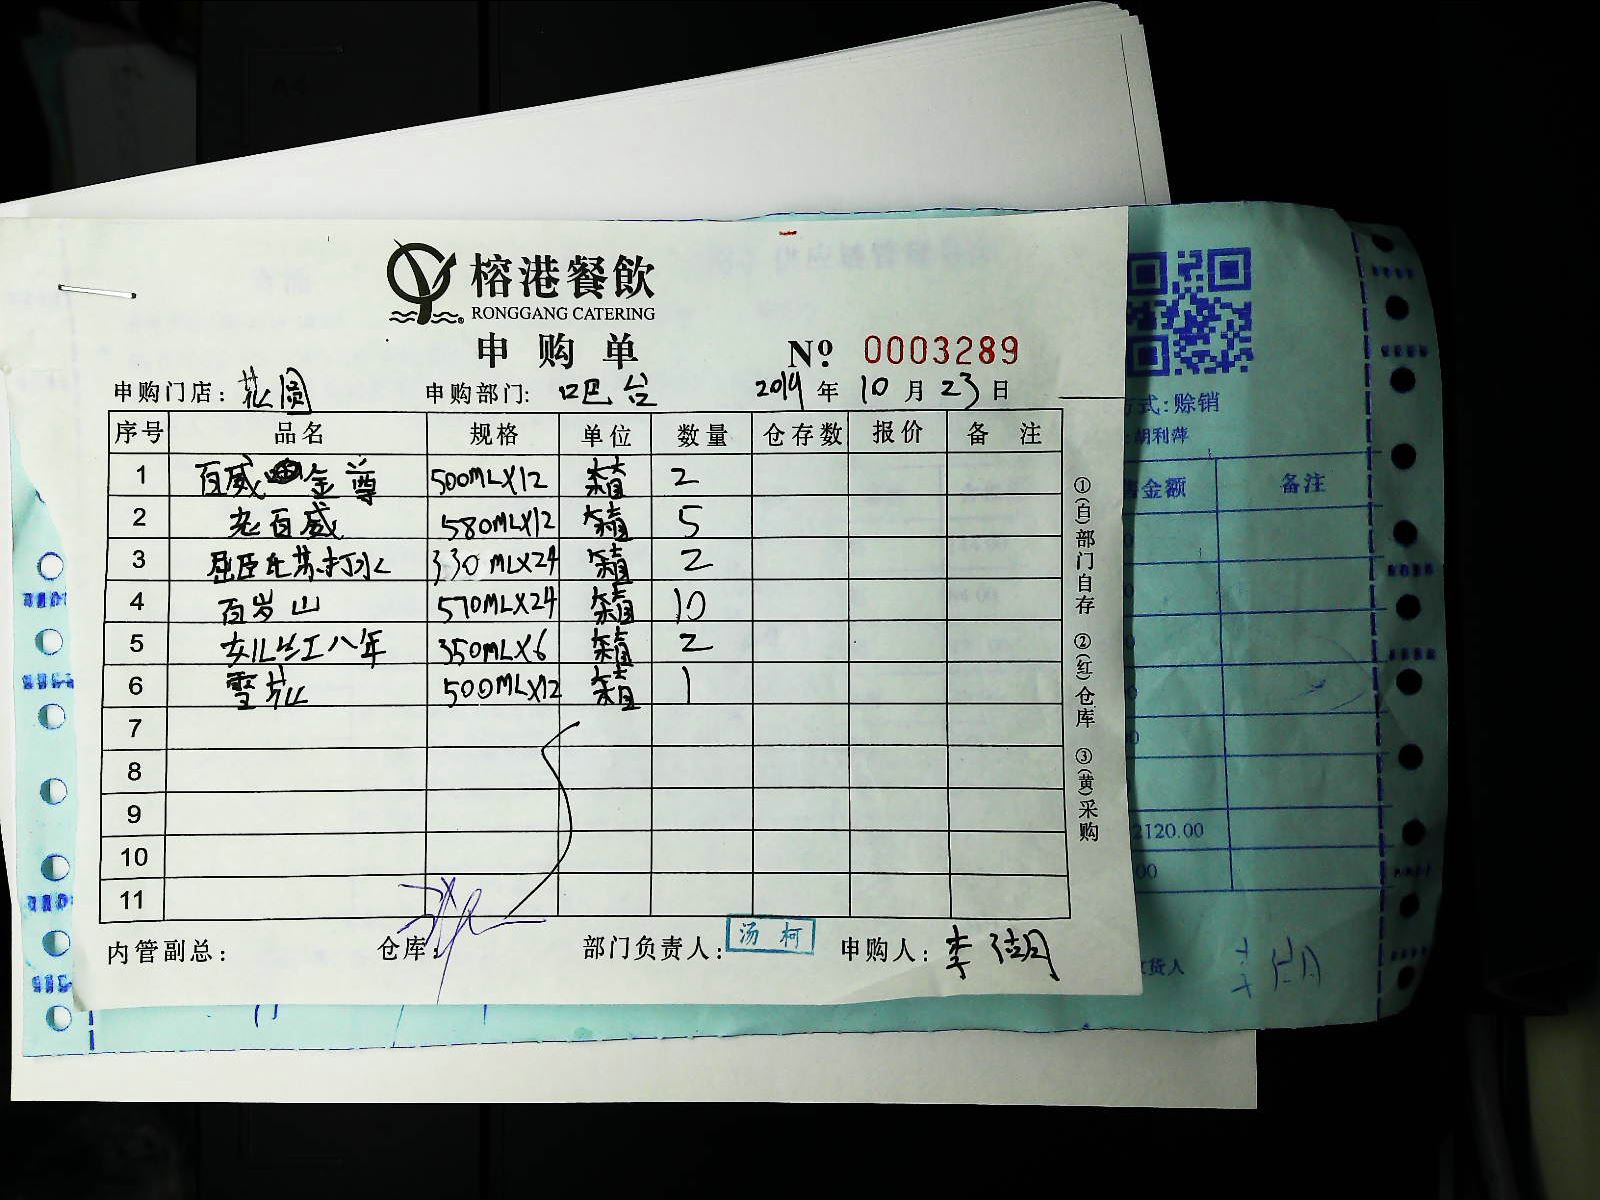 榕港餐飲
RONGGANG CATERING
申购单
Nº 0003289
申购门店: 花园 申购部门: 吧台 2019年10月23日
序号 品名 规格 单位 数量 仓存数 报价 备注
1 百威金尊 500MLX12 箱 2
2 老百威 580MLX12 箱 5
3 屈臣氏苏打水 330MLX24 箱 2
4 百岁山 570MLX24 箱 10
5 女儿红八年 350MLX6 箱 2
6 雪花 500MLX12 箱 1
7
8
9
10
11
内管副总: 仓库: 部门负责人: 汤柯 申购人: 李湖
①(白)部门自存 ②(红)仓库 ③(黄)采购
式:赊销
胡利萍
金额 备注
2120.00
00
货人